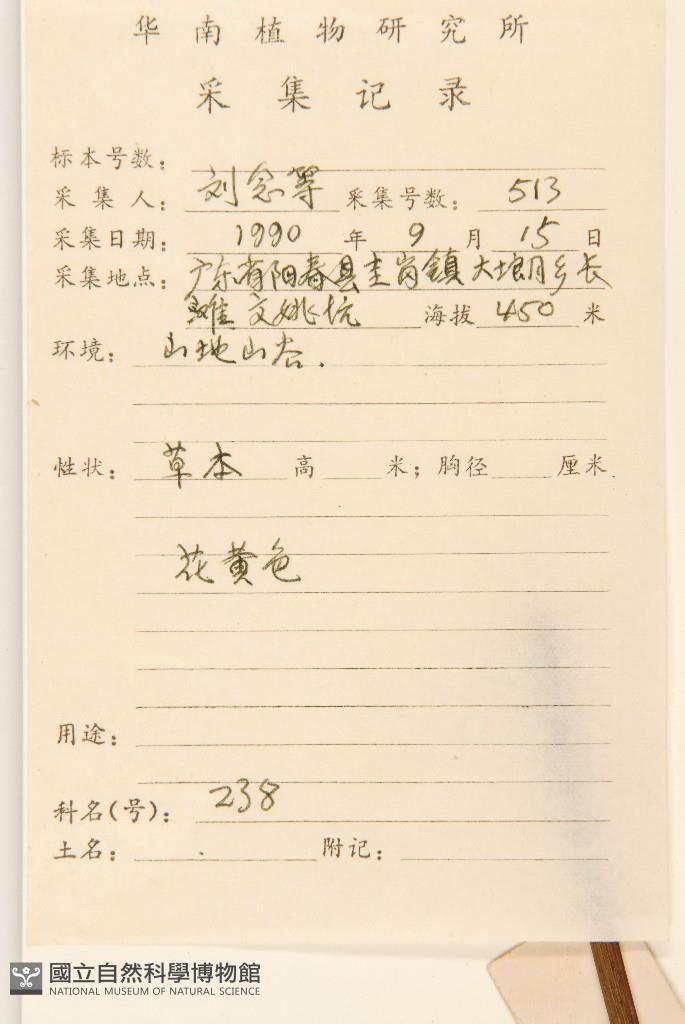 华南植物研究所
采集记录
标本号数:
采集人: 刘念等 采集号数: 513
采集日期: 1990 年 9 月 15 日
采集地点: 广东省阳春县圭岗镇大塱乡长
滩 文姚坑 海拔 450 米
环境: 山地山谷.
性状: 草本 高 米; 胸径 厘米
花黄色
用途:
科名(号): 238
土名: 附记:
國立自然科學博物館
NATIONAL MUSEUM OF NATURAL SCIENCE